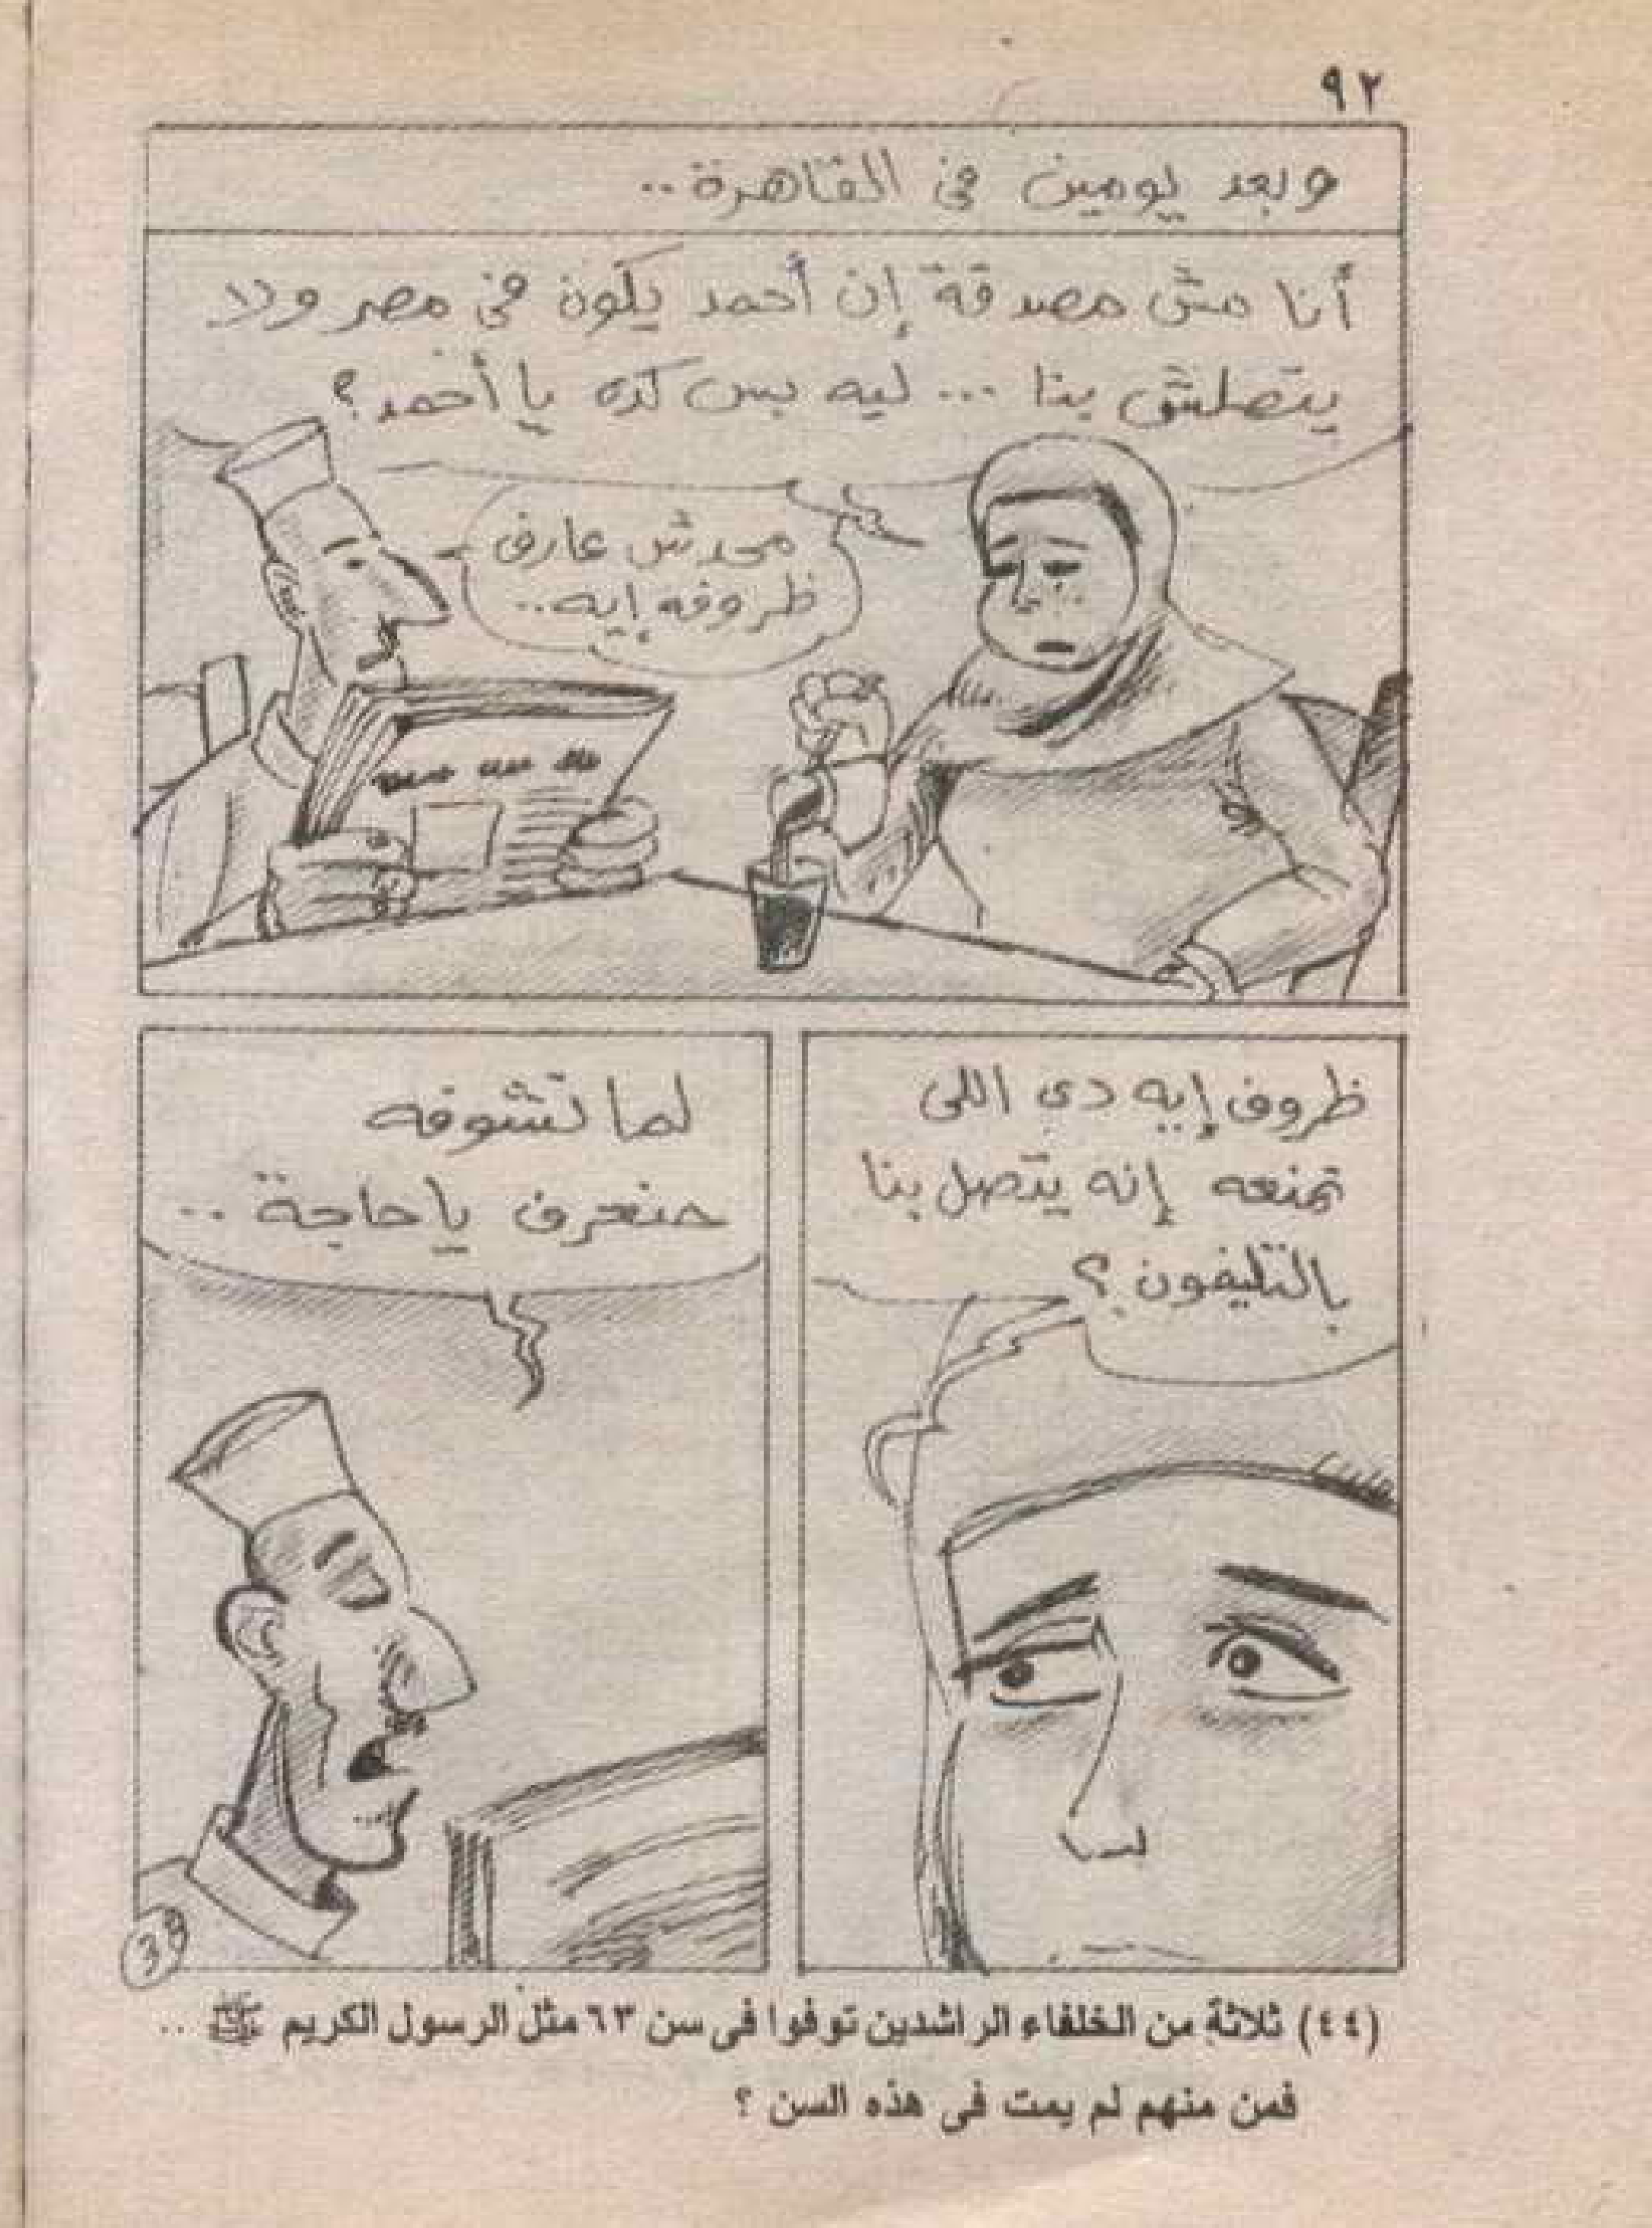 ٩٢
وبعد يومين في القاهرة..
أنا مش مصدقة إن أحمد يكون في مصر ولا
يتصلش بنا ... ليه بس كده يا أحمد؟
محدش عارف
ظروفه إيه..
ظروف إيه دي اللى
تمنعه إنه يتصل بنا
بالتليفون؟
لما نشوفه
حنعرف يا حاجة..
38
(٤٤) ثلاثة من الخلفاء الراشدين توفوا فى سن ٦٣ مثل الرسول الكريم ﷺ ..
فمن منهم لم يمت فى هذه السن ؟